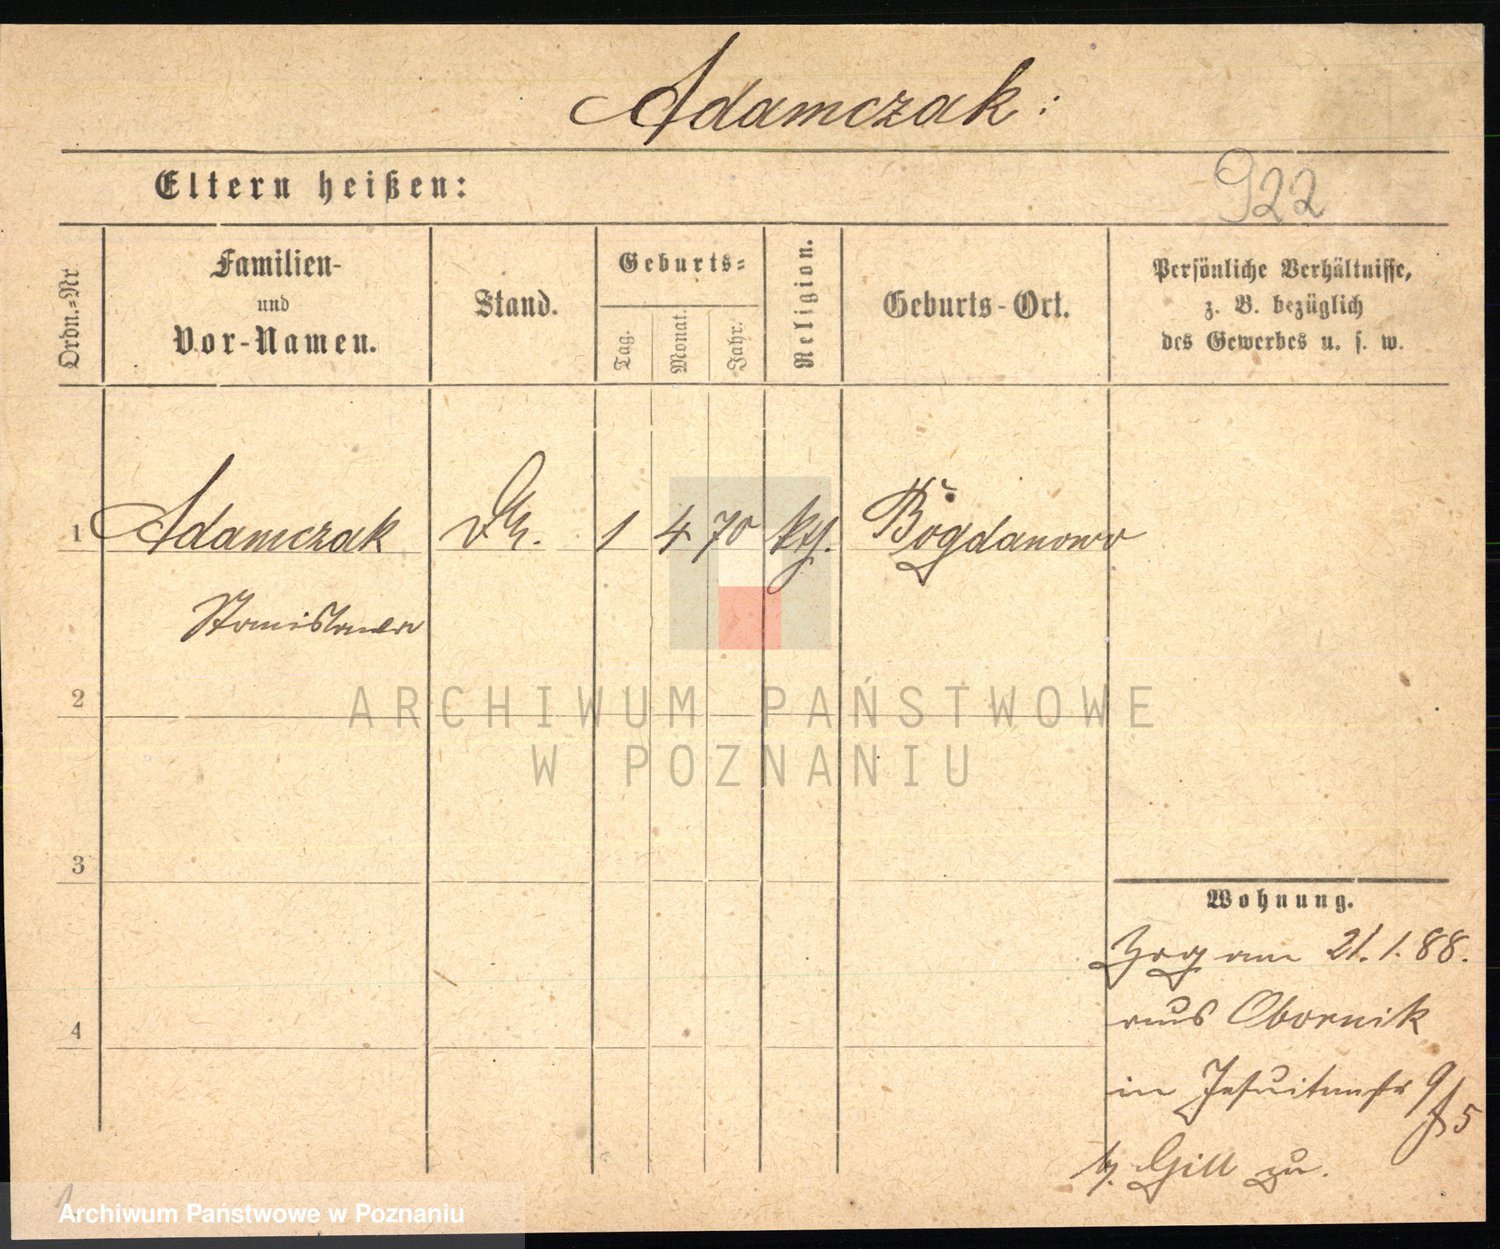 Adamczak:
Eltern heißen:
922
Ordn.=Nr
Familien-
und
Vor-Namen.
Stand.
Geburts=
Tag.
Monat.
Jahr.
Religion.
Geburts-Ort.
Persönliche Verhältnisse,
z. B. bezüglich
des Gewerbes u. s. w.
1 Adamczak 1 4 70 kth. Bogdanowo
Stanislawa
2
ARCHIWUM PAŃSTWOWE
W POZNANIU
3
Wohnung.
Zog am 21.1.88.
aus Obornik
4
in Jesuitenstr 9/5
b. Gill zu.
Archiwum Państwowe w Poznaniu